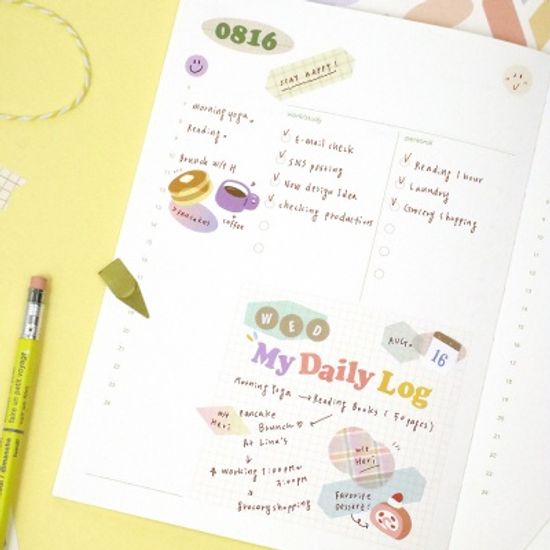 0816
STAY HAPPY!
Morning yoga.
Reading.
Brunch w/t H
pancakes
coffee
work/study
E-mail check
SNS posting
New design Idea
checking production
personal
Reading 1 hour
Laundry
Grocery Shopping
WED
AUG.
16
My Daily Log
Morning Yoga → Reading Books (50 pages)
w/t Hari
Pancake
Brunch ♡
At Lina's
working 1:00PM
3:00PM
grocery shopping
w/t
Hari
Favorite
Dessert!
faire un petit voyage